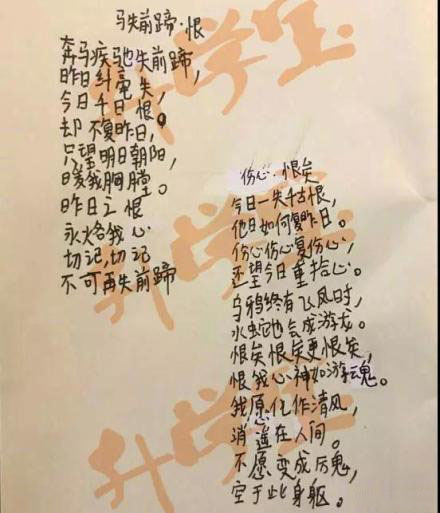 马失前蹄·恨
奔马疾驰失前蹄,
昨日纠毫失,
今日千日恨。
却不复昨日,
只望明日朝阳,
暖我胸膛。
昨日之恨
永烙我心
切记,切记
不可再失前蹄
伤心·恨矣
今日一失千古恨,
他日如何复昨日。
伤心伤心复伤心,
还望今日重拾心。
乌鸦终有飞凤时,
水蛇也会成游龙。
恨矣恨矣更恨矣,
恨我心神如游魂。
我愿化作清风,
逍遥在人间。
不愿变成厉鬼,
空于此身躯。
升学宝
升学宝
升学宝